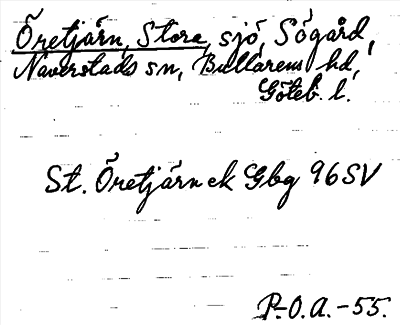 Öretjärn, Store, sjö, Sögård,
Naverstads sn, Bullarens hd,
Göteb. l.
St. Öretjärn ek Gbg 96SV
P.-O.A. -55.